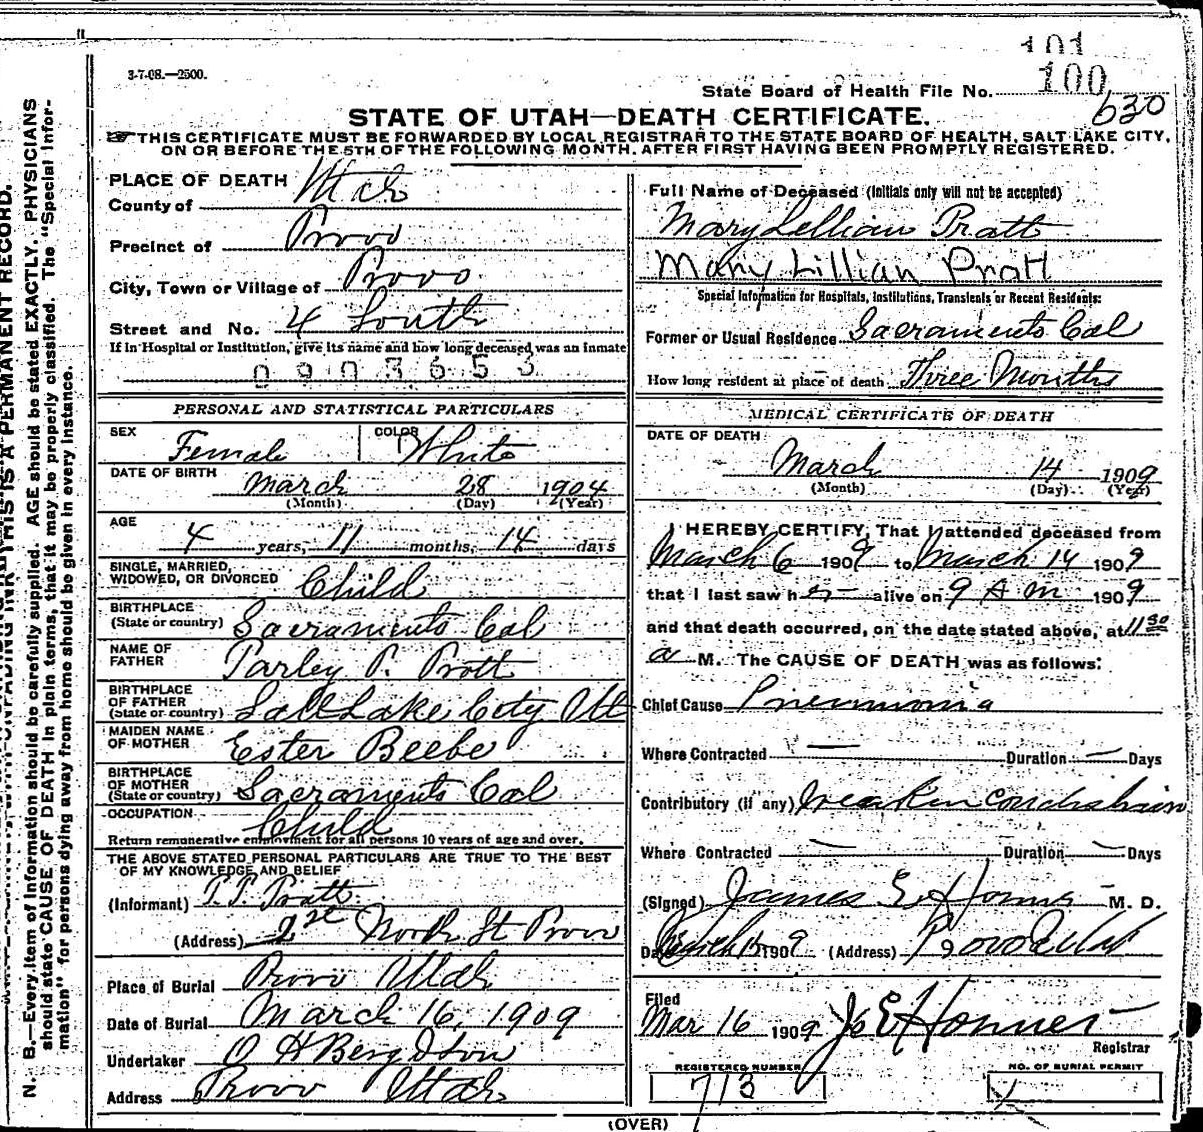 101
3-7-08.—2500.
State Board of Health File No. 100
630
STATE OF UTAH—DEATH CERTIFICATE.
THIS CERTIFICATE MUST BE FORWARDED BY LOCAL REGISTRAR TO THE STATE BOARD OF HEALTH, SALT LAKE CITY,
ON OR BEFORE THE 5TH OF THE FOLLOWING MONTH, AFTER FIRST HAVING BEEN PROMPTLY REGISTERED.
PLACE OF DEATH
County of Utah
Precinct of Provo
City, Town or Village of Provo
Street and No. 4 South
If in Hospital or Institution, give its name and how long deceased was an inmate
0903653
PERSONAL AND STATISTICAL PARTICULARS
SEX Female COLOR White
DATE OF BIRTH March 28 1904
(Month) (Day) (Year)
AGE
4 years, 11 months, 14 days
SINGLE, MARRIED,
WIDOWED, OR DIVORCED Child
BIRTHPLACE
(State or country) Sacramento Cal
NAME OF
FATHER Parley P. Pratt
BIRTHPLACE
OF FATHER
(State or country) Salt Lake City Ut
MAIDEN NAME
OF MOTHER Ester Beebe
BIRTHPLACE
OF MOTHER
(State or country) Sacramento Cal
OCCUPATION Child
Return remunerative employment for all persons 10 years of age and over.
THE ABOVE STATED PERSONAL PARTICULARS ARE TRUE TO THE BEST
OF MY KNOWLEDGE AND BELIEF
(Informant) P. P. Pratt
(Address) North St Provo
Place of Burial Provo Utah
Date of Burial March 16, 1909
Undertaker O H Berg & Son
Address Provo Utah
Full Name of Deceased (Initials only will not be accepted)
Mary Lellian Pratt
Mary Lillian Pratt
Special Information for Hospitals, Institutions, Transients or Recent Residents:
Former or Usual Residence Sacramento Cal
How long resident at place of death Three Months
MEDICAL CERTIFICATE OF DEATH
DATE OF DEATH
March 14 1909
(Month) (Day) (Year)
I HEREBY CERTIFY, That I attended deceased from
March 6 1909 to March 14 1909
that I last saw her alive on 9 A m 1909
and that death occurred, on the date stated above, at 11 30
a M. The CAUSE OF DEATH was as follows:
Chief Cause Pneumonia
Where Contracted — Duration — Days
Contributory (if any)
Where Contracted — Duration — Days
(Signed) James E. M. D.
Date March 1909 (Address) Provo Utah
Filed
Mar 16 1909
Registrar
REGISTERED NUMBER
713
NO. OF BURIAL PERMIT
(OVER)
THIS IS A PERMANENT RECORD.
N. B.—Every item of information should be carefully supplied. AGE should be stated EXACTLY. PHYSICIANS
should state CAUSE OF DEATH in plain terms, that it may be properly classified. The "Special Infor-
mation" for persons dying away from home should be given in every instance.